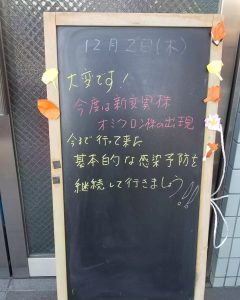 12月2日(木)
大変です!
今度は新変異株
オミクロン株の出現
今まで行って来た
基本的な感染予防を
継続して行きましょう!!